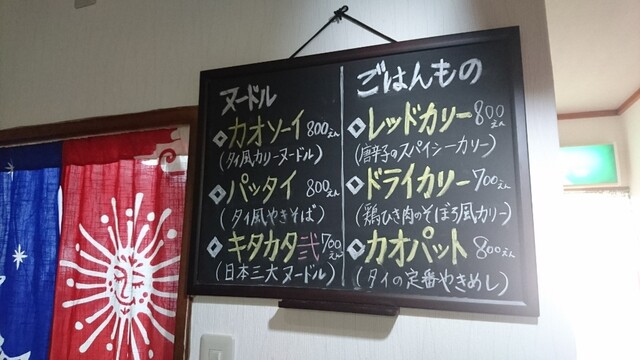 ヌードル
◇カオソーイ 800えん
(タイ風カリーヌードル)
◇パッタイ 800えん
(タイ風やきそば)
◇キタカタ弐 700えん
(日本三大ヌードル)
ごはんもの
◇レッドカリー 800えん
(唐辛子のスパイシーカリー)
◇ドライカリー 700えん
(鶏ひき肉のそぼろ風カリー)
◇カオパット 800えん
(タイの定番やきめし)